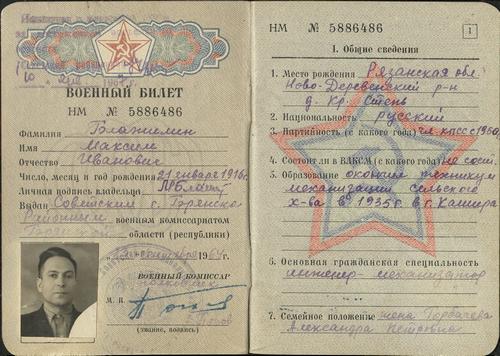 ВОЕННЫЙ БИЛЕТ
НМ № 5886486
Фамилия
Имя Максим
Отчество Иванович
Число, месяц и год рождения 21 января 1916 г.
Личная подпись владельца
Выдан Советским г.
Районным военным комиссариатом
области (республики)
1964 г.
ВОЕННЫЙ КОМИССАР
М. П.
(звание, подпись)
НМ № 5886486
1
I. Общие сведения
1. Место рождения Рязанская обл.
Ново-Деревенский р-н
д. Кр. Степь
2. Национальность русский
3. Партийность (с какого года) чл. КПСС с 1960
4. Состоит ли в ВЛКСМ (с какого года) не сост.
5. Образование окончил техникум
механизации сельского
х-ва в 1935 г. в г. Кашира
6. Основная гражданская специальность
инженер-механизатор
7. Семейное положение жена Горбачева
Александра Петровна